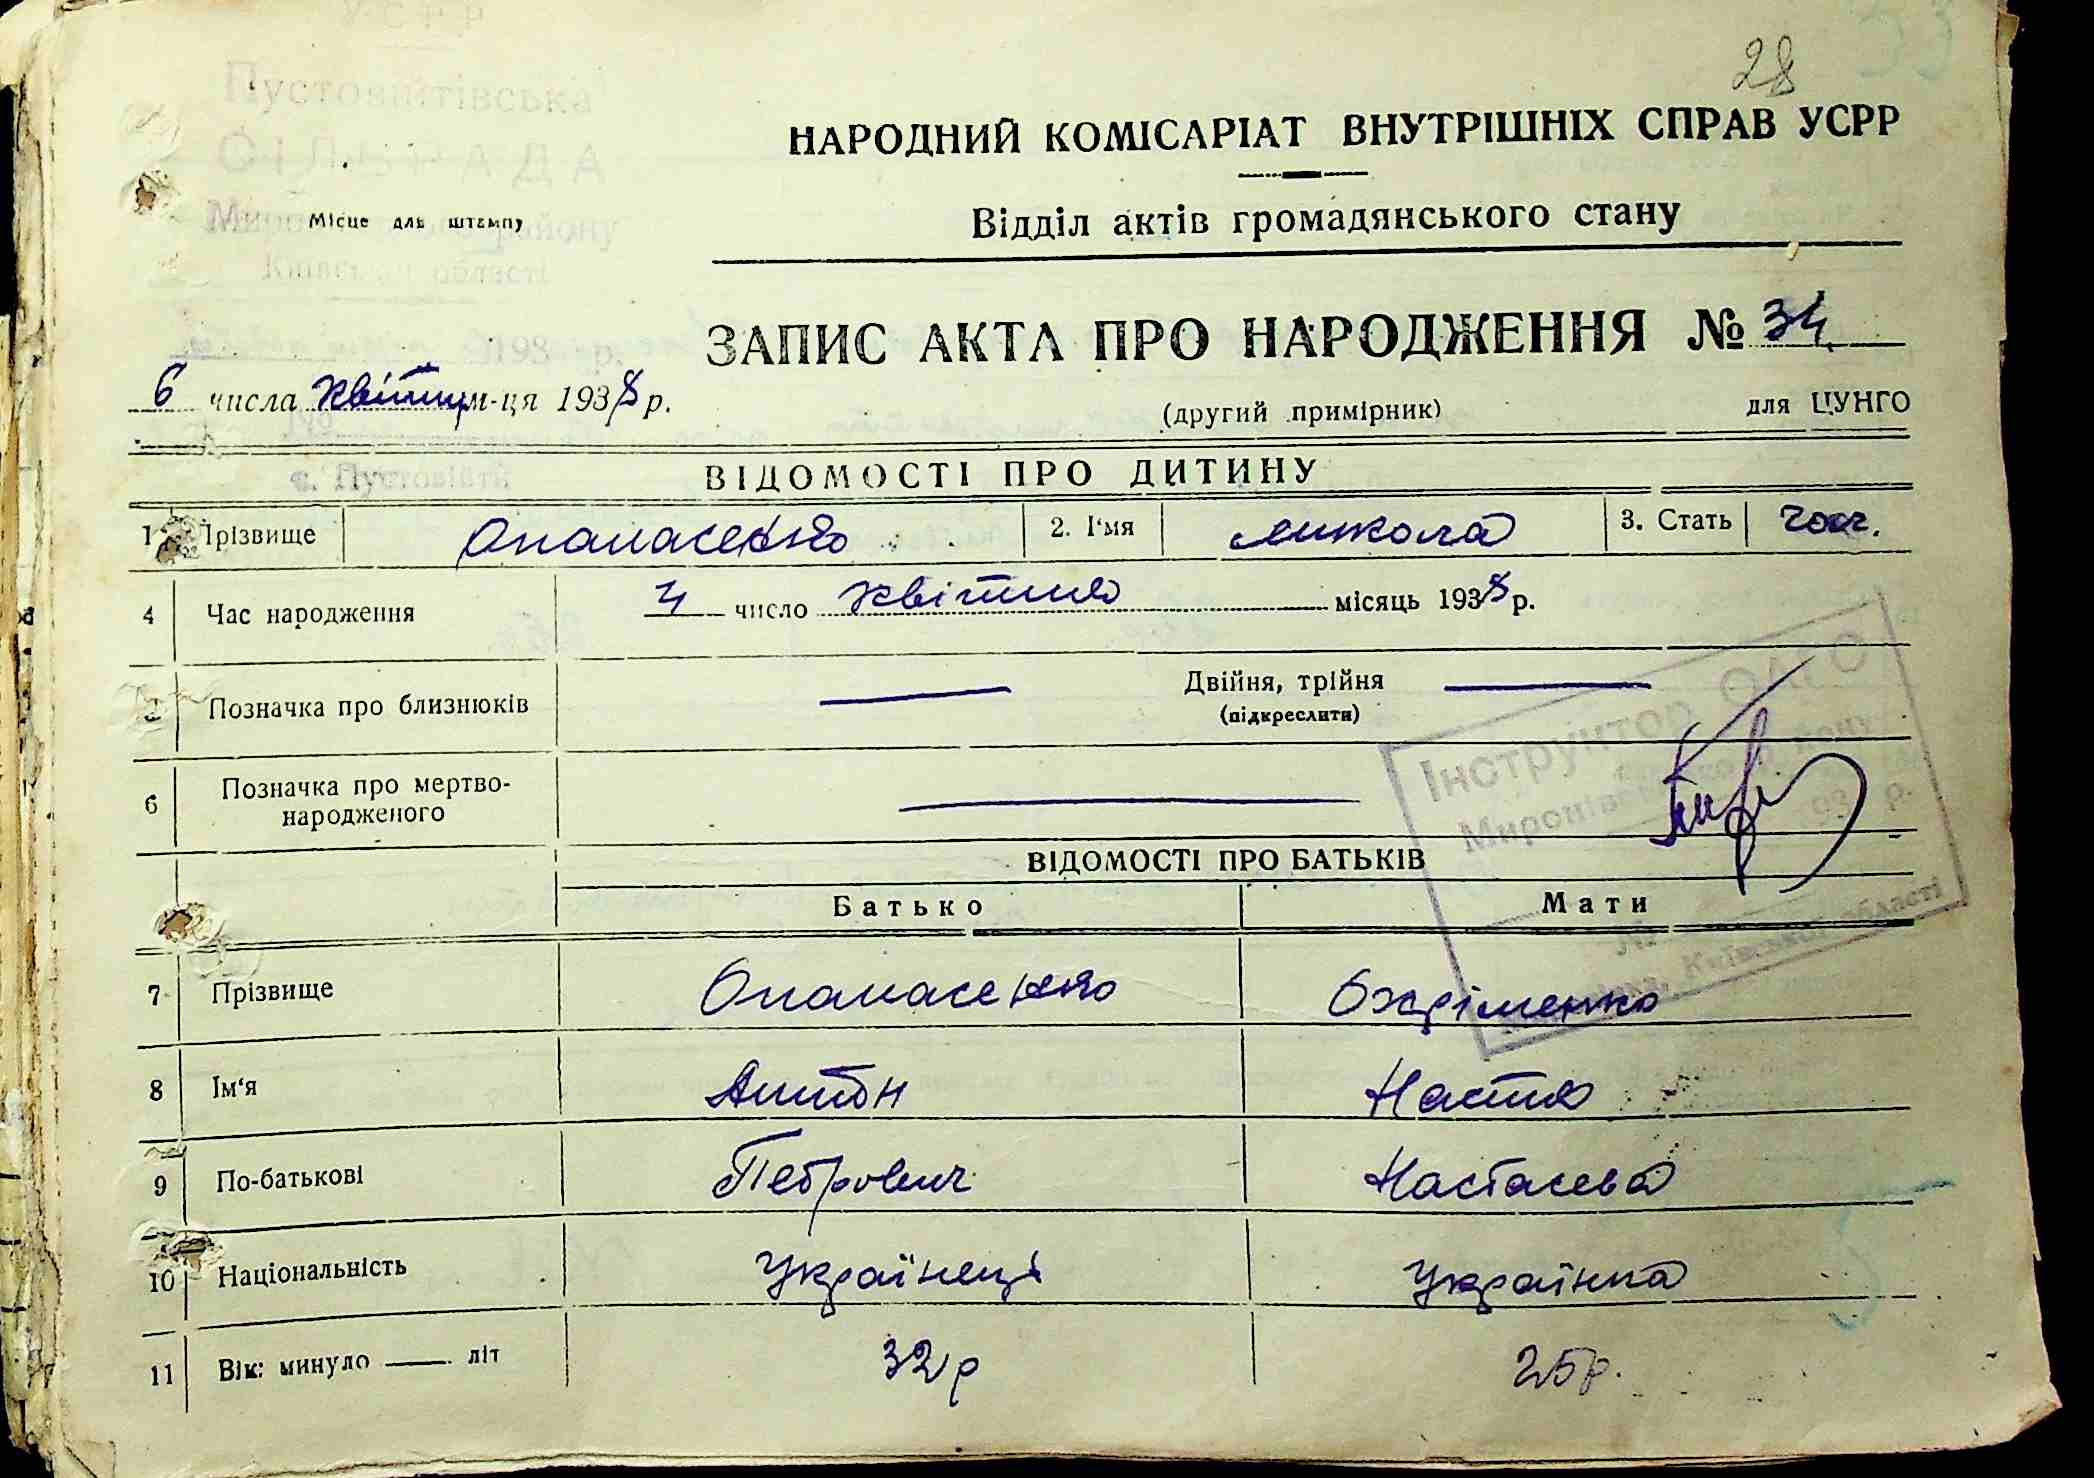 28
НАРОДНИЙ КОМІСАРІАТ ВНУТРІШНІХ СПРАВ УСРР
Відділ актів громадянського стану
Місце для штампу
ЗАПИС АКТА ПРО НАРОДЖЕННЯ № 34
6 числа квітня м-ця 1938 р.
(другий примірник)
для ЦУНГО
ВІДОМОСТІ ПРО ДИТИНУ
1 Прізвище Опанасенко 2. І'мя Микола 3. Стать чол.
4 Час народження 4 число квітня місяць 1938 р.
Позначка про близнюків — Двійня, трійня —
(підкреслити)
6 Позначка про мертво-
народженого —
Інструктор ОАГО
ВІДОМОСТІ ПРО БАТЬКІВ
Батько Мати
7 Прізвище Опанасенко Охріменко
8 Ім'я Антон Настя
9 По-батькові Петрович Настасева
10 Національність Українець Українка
11 Вік: минуло —— літ 32 р 25 р.
Пустовитівська
СІЛЬРАДА
Київської області
с. Пустовійти